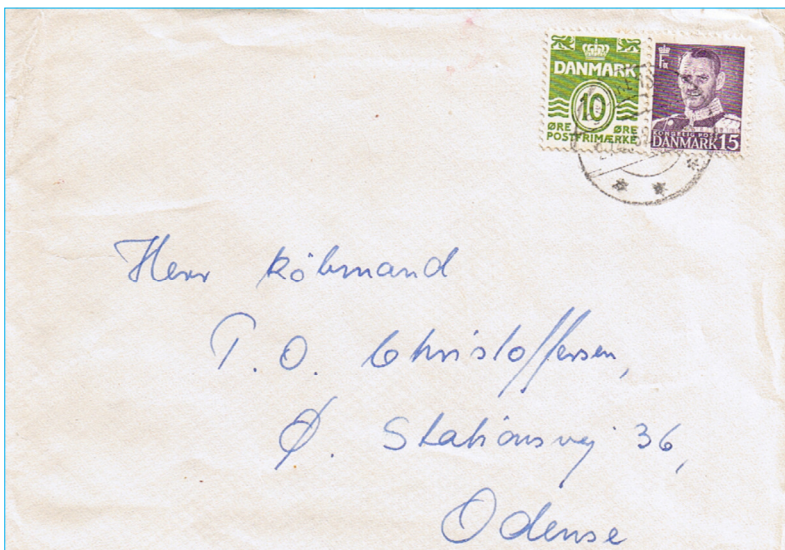 DANMARK
10
ØRE ØRE
POSTFRIMÆRKE
FR
KONGELIG POST
DANMARK 15
Herr Köbmand
T. O. Christoffersen,
Ø. Stationsvej 36,
Odense